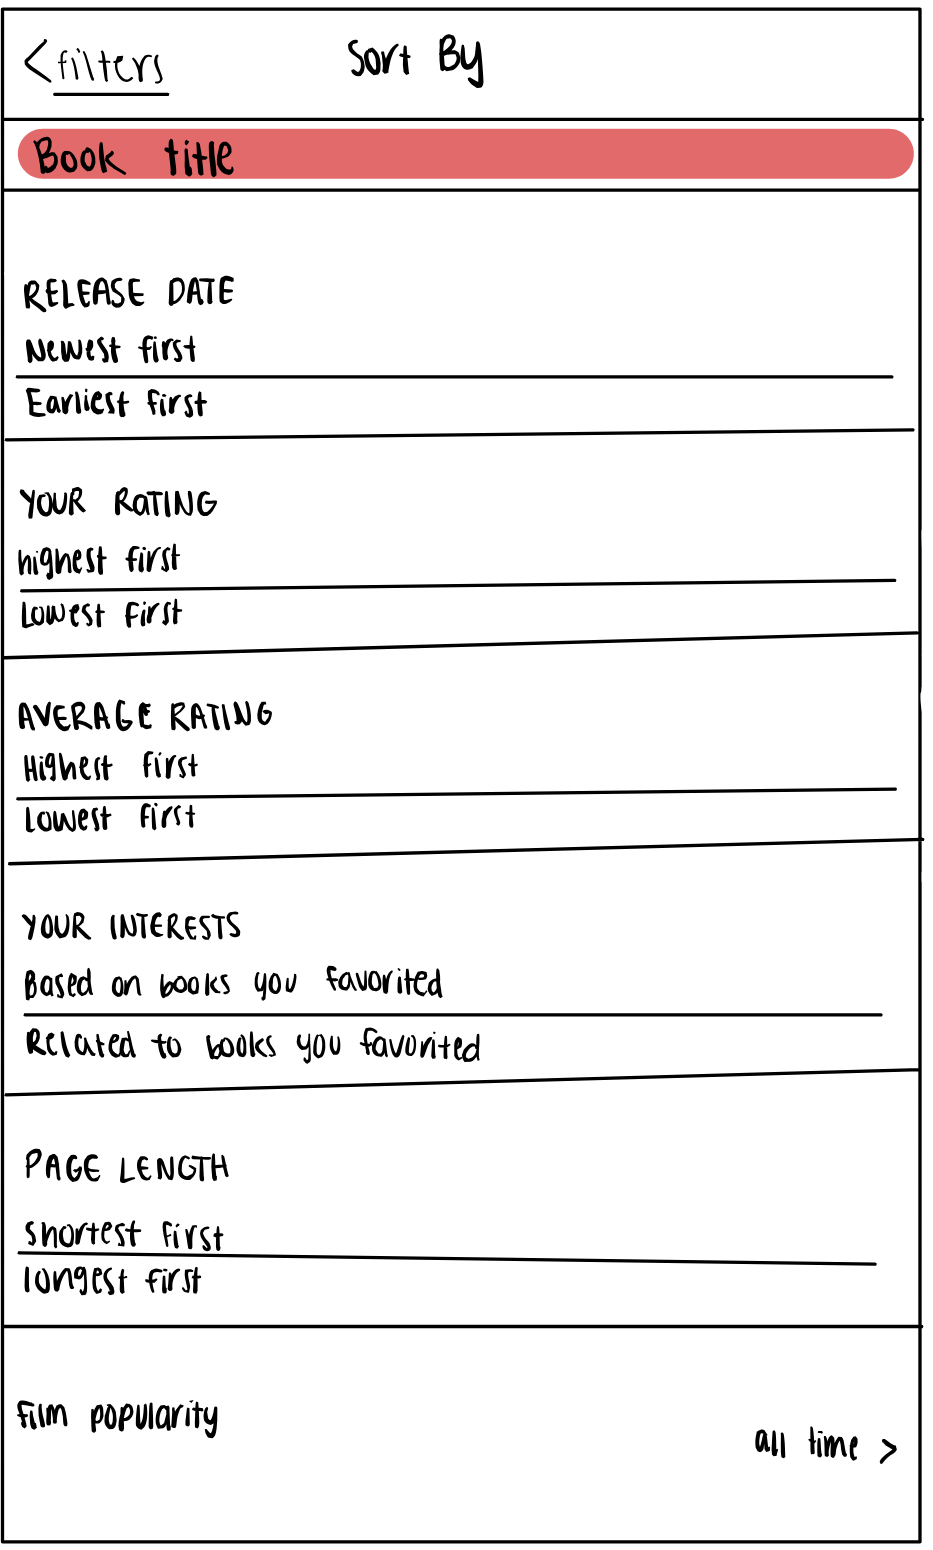 < filters
Sort By
Book title
RELEASE DATE
Newest first
Earliest first
YOUR RATING
highest first
Lowest first
AVERAGE RATING
Highest first
Lowest first
YOUR INTERESTS
Based on books you favorited
Related to books you favorited
PAGE LENGTH
shortest first
longest first
film popularity
all time >